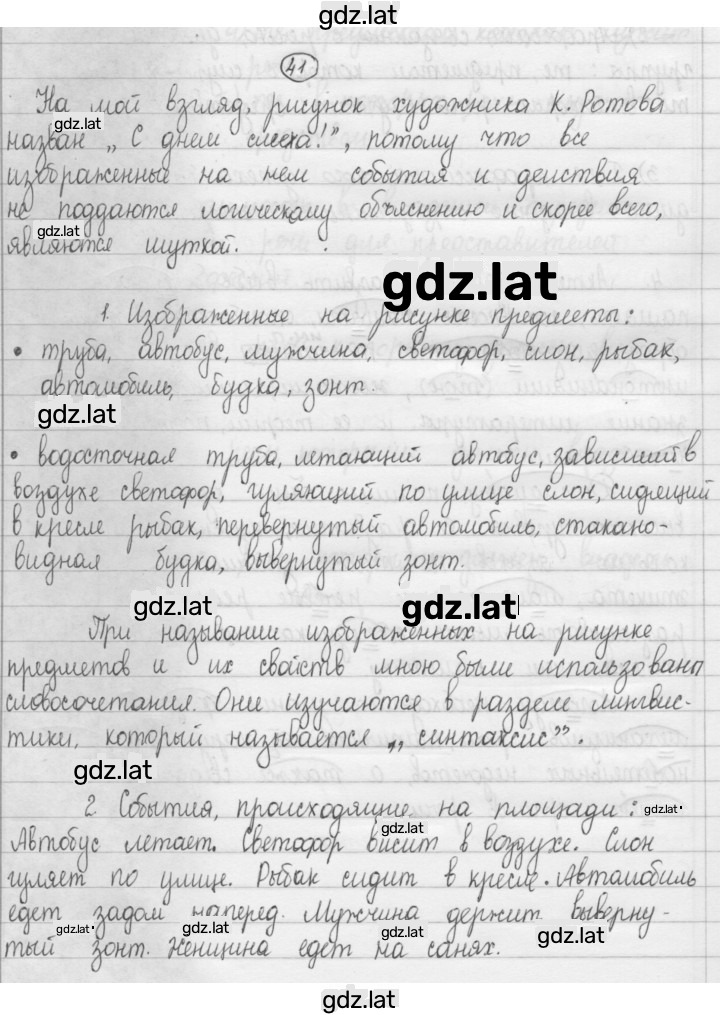 gdz.lat
41
На мой взгляд, рисунок художника К. Ротова
gdz.lat
назван „С днем смеха!”, потому что все
изображенные на нем события и действия
не поддаются логическому объяснению и скорее всего,
gdz.lat
являются шуткой.
gdz.lat
1. Изображенные на рисунке предметы:
• труба, автобус, мужчина, светофор, слон, рыбак,
автомобиль, будка, зонт.
gdz.lat
• водосточная труба, летающий автобус, зависший в
воздухе светофор, гуляющий по улице слон, сидящий
в кресле рыбак, перевернутый автомобиль, стакано-
видная будка, вывернутый зонт.
gdz.lat
gdz.lat
При назывании изображенных на рисунке
предметов и их свойств мною были использованы
словосочетания. Они изучаются в разделе лингвис-
тики, который называется „синтаксис”.
gdz.lat
2. События, происходящие на площади:
gdz.lat
gdz.lat
Автобус летает. Светофор висит в воздухе. Слон
гуляет по улице. Рыбак сидит в кресле. Автомобиль
едет задом наперед. Мужчина держит выверну-
gdz.lat
gdz.lat
gdz.lat
тый зонт. Женщина едет на санях.
gdz.lat